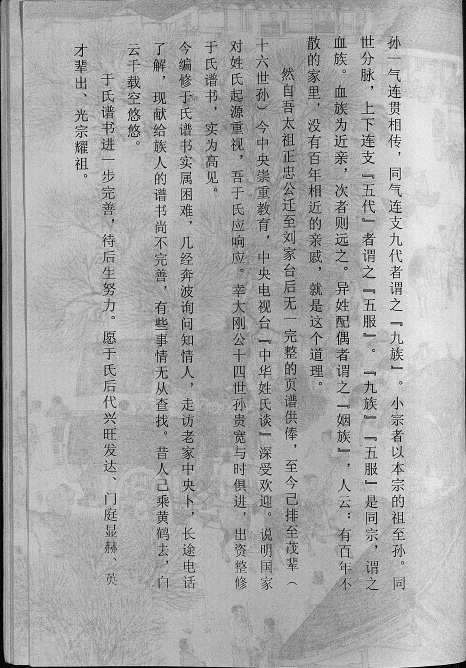 孙一气连贯相传，同气连支九代者谓之『九族』。小宗者以本宗的祖至孙。同
世分脉，上下连支『五代』者谓之『五服』。『九族』『五服』是同宗，谓之
血族。血族为近亲，次者则远之。异姓配偶者谓之『姻族』，人云：有百年不
散的家里，没有百年相近的亲戚，就是这个道理。
然自吾太祖正忠公迁至刘家台后无一完整的页谱供俸，至今己排至茂辈（
十六世孙）今中央崇重教育，中央电视台『中华姓氏谈』深受欢迎。说明国家
对姓氏起源重视，吾于氏应响应。幸大刚公十四世孙贵宽与时俱进，出资整修
于氏谱书，实为高见。
今编修于氏谱书实属困难，几经奔波询问知情人，走访老家中央卜，长途电话
了解，现献给族人的谱书尚不完善，有些事情无从查找。昔人己乘黄鹤去，白
云千载空悠悠。
于氏谱书进一步完善，待后生努力。愿于氏后代兴旺发达、门庭显赫、英
才辈出、光宗耀祖。